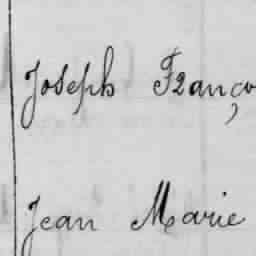 Joseph Franço
Jean Marie